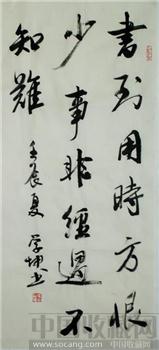 書到用時方恨
少事非經過不
知難
壬辰夏 學坤書
中国收藏网
www.socang.com